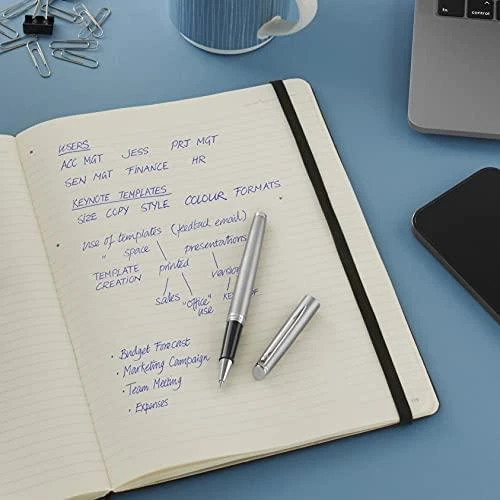 USERS
ACC MGT JESS PRJ MGT
SEN MGT FINANCE HR
KEYNOTE TEMPLATES
SIZE COPY STYLE COLOUR FORMATS
use of templates (feedback email)
" space presentations
TEMPLATE CREATION printed
sales "office" use
• Budget Forecast
• Marketing Campaign
• Team Meeting
• Expenses
control